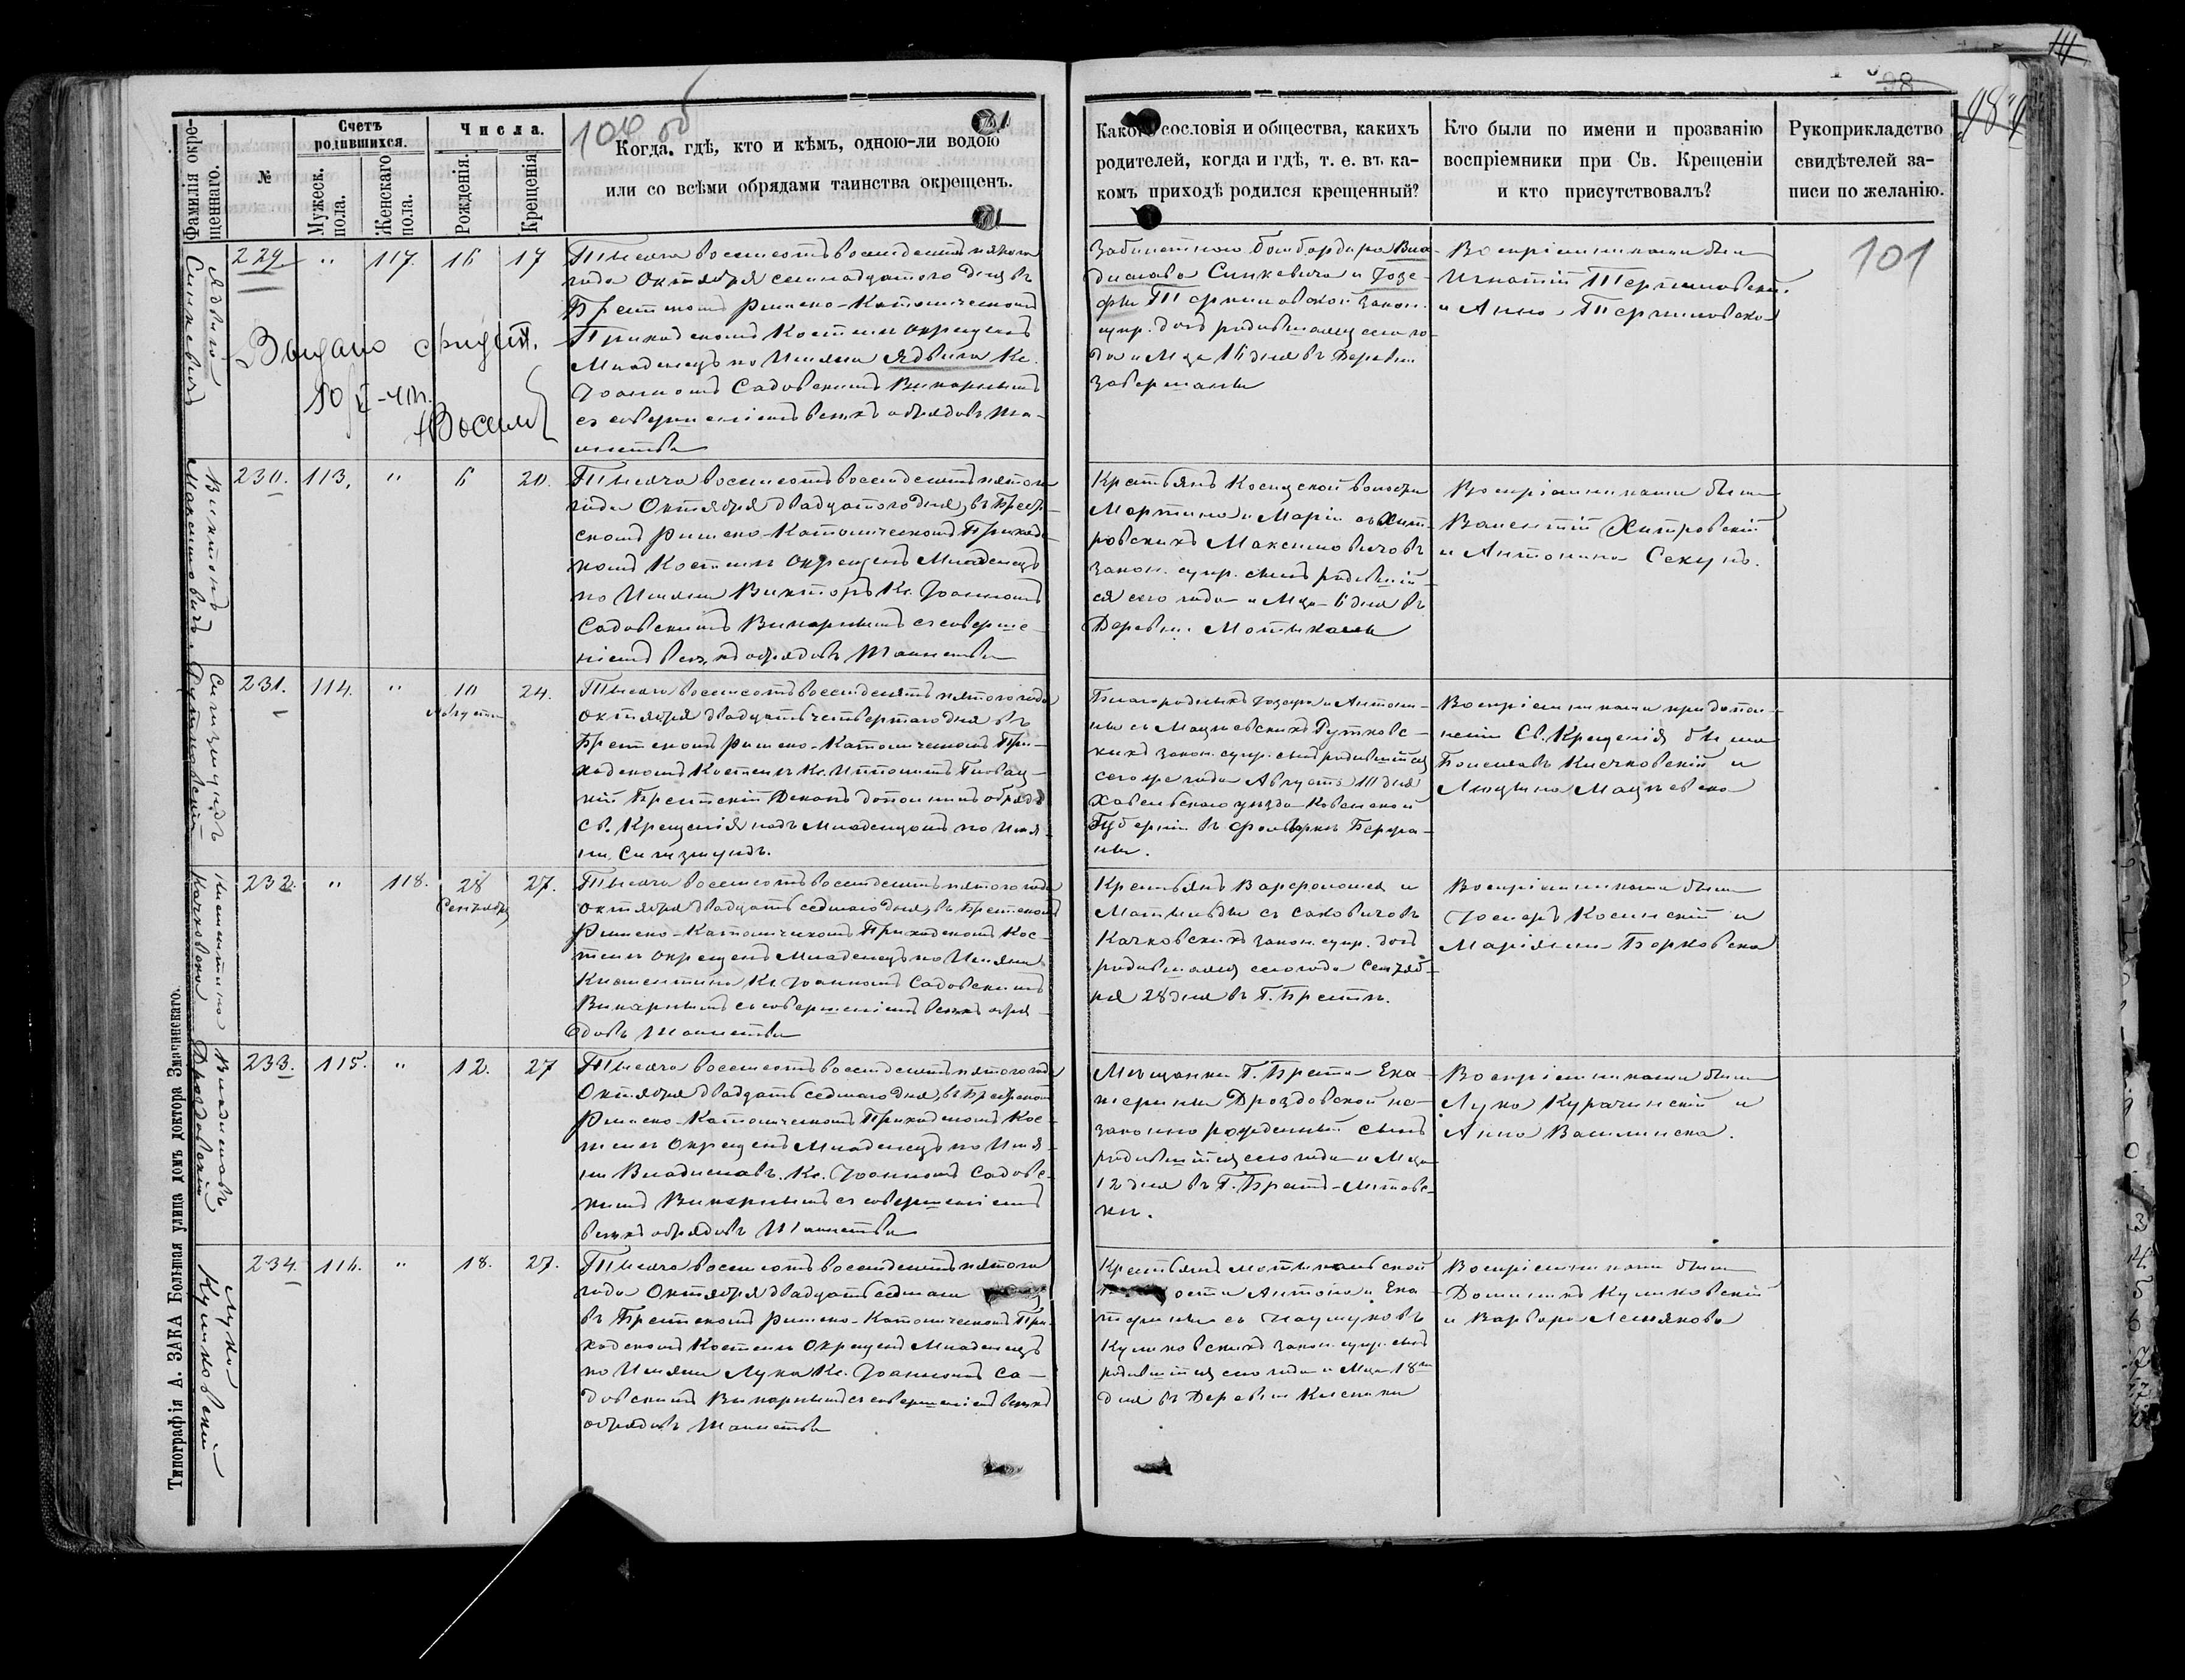 104 об
98
101
Фамилія окрещеннаго.
№
Счетъ родившихся.
Мужеск. пола.
Женскаго пола.
Числа.
Рожденія.
Крещенія
Когда, гдѣ, кто и кѣмъ, одною-ли водою
или со всѣми обрядами таинства окрещенъ.
Какого сословія и общества, какихъ
родителей, когда и гдѣ, т. е. въ ка-
комъ приходѣ родился крещенный?
Кто были по имени и прозванію
воспріемники при Св. Крещеніи
и кто присутствовалъ?
Рукоприкладство
свидѣтелей за-
писи по желанію.
Ядвига
Синкевичъ
229. " 117. 16 17
Выдано
Тысяча восемсотъ восемдесятъ пятого
года Октября семнадцатого дня въ
Брестскомъ Римско-Католическомъ
Приходскомъ Костелѣ окрещенъ
Младенецъ по Имяни Ядвига Кс.
Іоанномъ Садовскимъ Викарнымъ
съ совершеніемъ всѣхъ обрядовъ та-
инства
Бомбардира Вла-
дислава Синкевича и Юзе-
фы Терпиловской закон.
супр. дочь родившаяся сего го-
да и М-ца 16 дня въ Деревни
Воспріемниками были
Игнатій Терпиловскій
и Анна Терпиловска
Викторъ
Максимовичъ.
230. 113. " 6 20.
Тысяча восемсотъ восемдесятъ пятого
года Октября двадцатого дня, въ Брест-
скомъ Римско-Католическомъ Приход-
номъ Костелѣ окрещенъ Младенецъ
по Имяни Викторъ Кс. Іоанномъ
Садовскимъ Викарнымъ съ соверше-
ніемъ всѣхъ обрядовъ Таинства
Крестьянъ Косицской волости
Мартина и Маріи съ Хит-
ровскихъ Максимовичовъ
закон. супр. сынъ родившій-
ся сего года и М-ца 6 дня въ
Деревни Мотыкалы
Воспріемниками были
Валентій Хитровскій
и Антонина Секунъ.
Сигизмундъ
Рутковскій
231. 114. " 10 Августа 24.
Тысяча восемсотъ восемдесятъ пятого года
Октября двадцать четвертаго дня въ
Брестскомъ Римско-Католическомъ При-
ходскомъ Костелѣ Кс. Ипполитъ
Брестскій Деканъ дополнилъ обрядъ
Св. Крещенія надъ Младенцомъ по Имя-
ни Сигизмундъ.
Благородныхъ Іозефа и Антони-
ны съ Мацѣевскихъ Рутковс-
кихъ закон. супр. сынъ родившійся
сего же года Августа 10 дня
уѣзда Ковенской
Губерніи въ фольваркѣ
Воспріемниками при допол-
неніи Св. Крещенія были
Болеславъ Клечковскій и
Люцина Мацѣевска
Клементина
Качковска
232. " 118. 28 Сентября 27.
Тысяча восемсотъ восемдесятъ пятого года
Октября двадцать седмаго дня, въ Брестскомъ
Римско-Католическомъ Приходскомъ Кос-
телѣ окрещенъ Младенецъ по Имяни
Клементина Кс. Іоанномъ Садовскимъ
Викарнымъ съ совершеніемъ всѣхъ обря-
довъ Таинства
Крестьянъ Варфоломея и
Матильды съ Саковичовъ
Качковскихъ закон. супр. дочь
родившаяся сего года Сентяб-
ря 28 дня въ Г. Брестѣ.
Воспріемниками были
Госпаръ Косинскій и
Маріянна Борковска
Владиславъ
Дроздовскій
233. 115. " 12. 27
Тысяча восемсотъ восемдесятъ пятого года
Октября двадцать седмаго дня, въ Брестскомъ
Римско-Католическомъ Приходскомъ Кос-
телѣ Окрещенъ Младенецъ по Имя-
ни Владиславъ. Кс. Іоанномъ Садовс-
кимъ Викарнымъ съ совершеніемъ
всѣхъ обрядовъ Таинства
Мѣщанки Г. Бреста Ека-
терины Дроздовской не-
законно рожденный сынъ
родившійся сего года и М-ца
12 дня въ Г. Брестъ-Литовс-
кѣ.
Воспріемниками были
Лука Курачинскій и
Анна Василинска.
Лука
Куликовскій
234. 116. " 18. 27.
Тысяча восемсотъ восемдесятъ пятого
года Октября двадцать седмаго
въ Брестскомъ Римско-Католическомъ При-
ходскомъ Костелѣ Окрещенъ Младенецъ
по Имяни Лука Кс. Іоанномъ Са-
довскимъ Викарнымъ съ совершеніемъ всѣхъ
обрядовъ Таинства
Крестьянъ Мотыкальской
Антона и Ека-
терины съ
Куликовскихъ закон. супр. сынъ
родившійся сего года и М-ца 18го
дня въ Деревни
Воспріемниками были
Доминикъ Куликовскій
и Варвара Леснякова
Типографія А. ЗАКА Большая улица домъ доктора Змачинскаго.